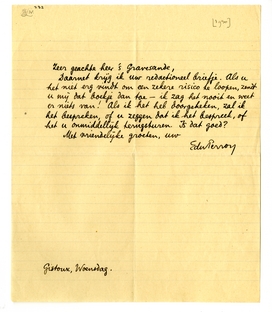 Zeer geachte heer 's Gravesande,
Daarnet krijg ik uw redactioneel briefje. Als u
het niet erg vindt om een zekere risico te loopen, zendt
u mij dat boekje dan toe — ik zag het nooit en weet
er niets van! Als ik het heb doorgekeken, zal ik
het bespreken, of u zeggen dat ik het bespreek, of
het u onmiddellijk terugsturen. Is dat goed?
Met vriendelijke groeten, uw
EduPerron
Gistoux, Woensdag.